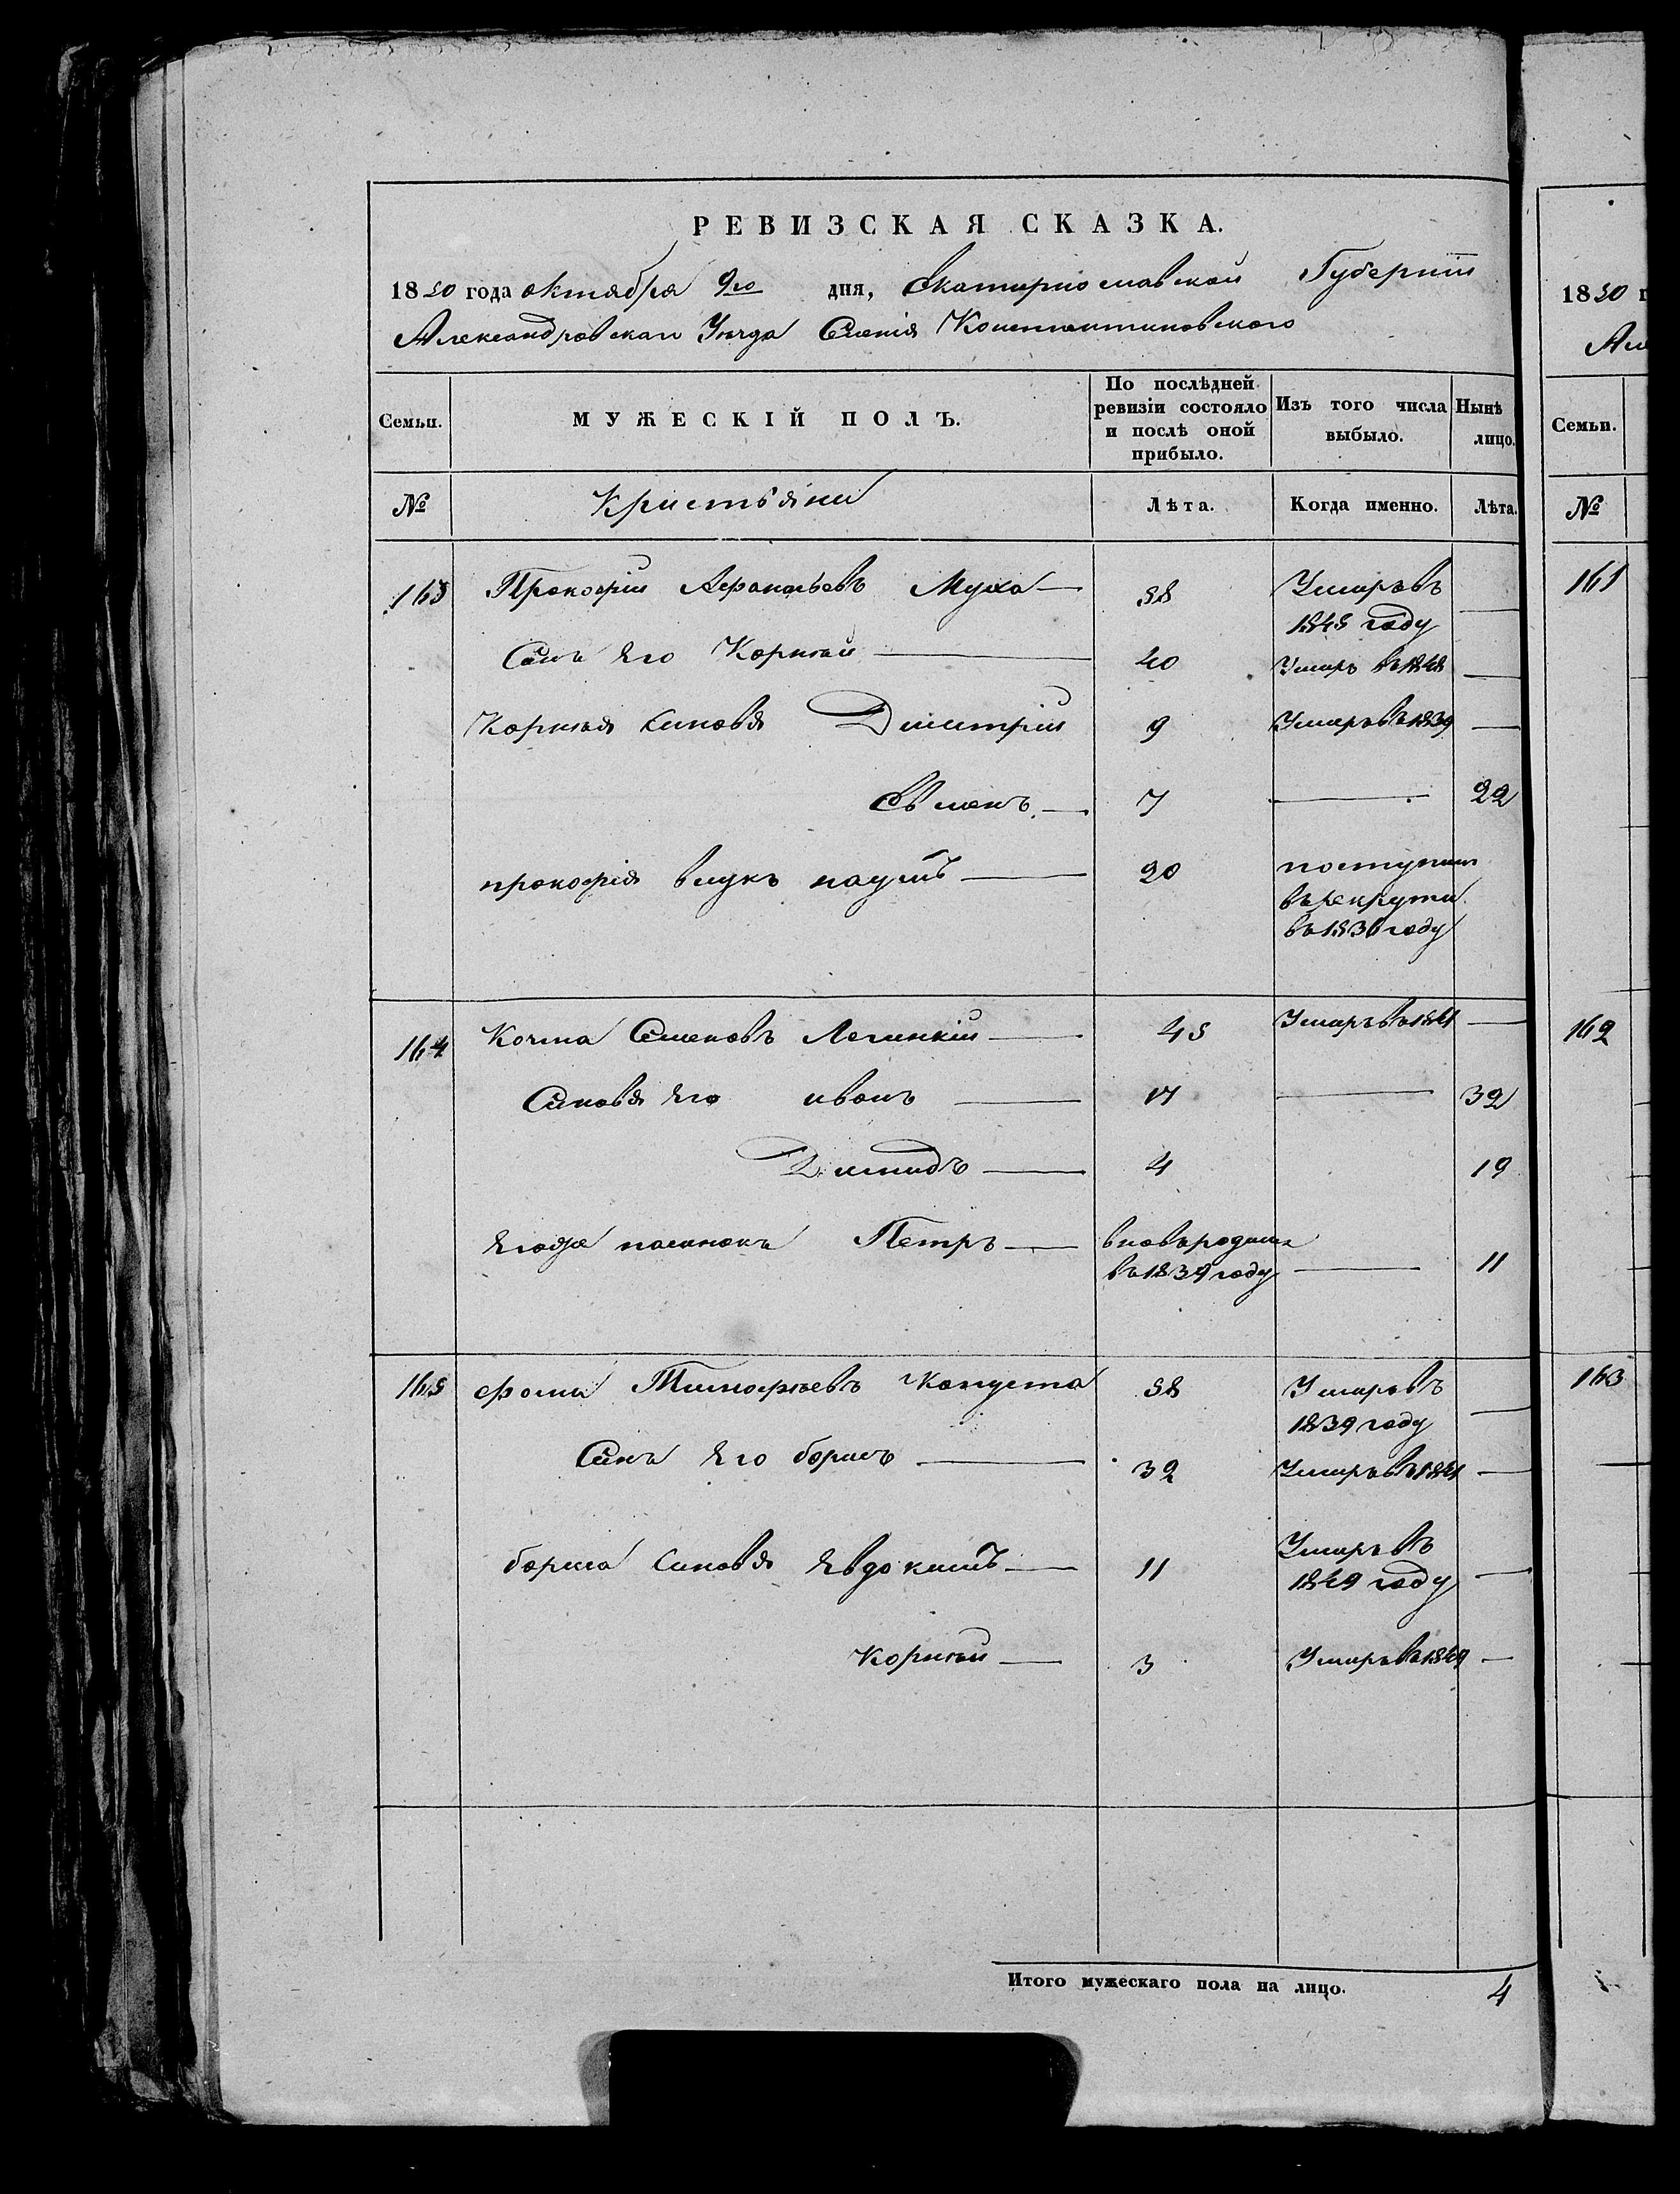 РЕВИЗСКАЯ СКАЗКА.
1850 года октября 9го дня, Екатирнославской Губернии
Александровскаго Уезда Селенiя Констянтиновского
Семьи. МУЖЕСКІЙ ПОЛЪ. По послѣдней ревизіи состояло и послѣ оной прибыло. Изъ того числа выбыло. Нынѣ лицо.
№ Кристьяни Лѣта. Когда именно. Лѣта.
163 Прокофий Афанасьевъ Муха 58 Умиръ въ
1845 году
Синъ Его Корней 40 Умиръ въ 1848
Корнея Синовя Дмитрий 9 Умиръ въ 1839
Семенъ 7 22
прокофiя внукъ наумъ 20 поступилъ
въ рекрути
въ 1836 году
164 Козма Семеновъ 45 Умиръ въ 1841
Синовя Его иванъ 17 32
Димидъ 4 19
Егоже пасинокъ Петръ вновь родился 11
въ 1839 году
165 Фома Тимофеевъ Капуста 58 Умиръ въ
1839 году
Синъ Его борисъ 32 Умиръ въ 1841
бориса Синовя Евдокимъ 11 Умиръ въ
1849 году
Корней 3 Умиръ въ 1849
Итого мужескаго пола на лицо. 4
1850 г
Але
Семьи.
№
161
162
163